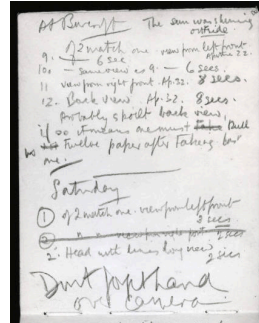 At Bancroft The sun was shining
outside
9. of 2 match one view from left front
6 sec Aperture 22
10. - same view as 9. - 6 secs.
11 view from right front Ap.32. 8 secs.
12. Back view. Ap.32. 8 secs.
Probably spoilt back view,
if so it means one must Pull
Twelve paper after taking last
one.
Saturday
① of 2 match one view from left front
2 secs
2 secs
2. Head with lines long view
2 secs
Dont put hand
over camera